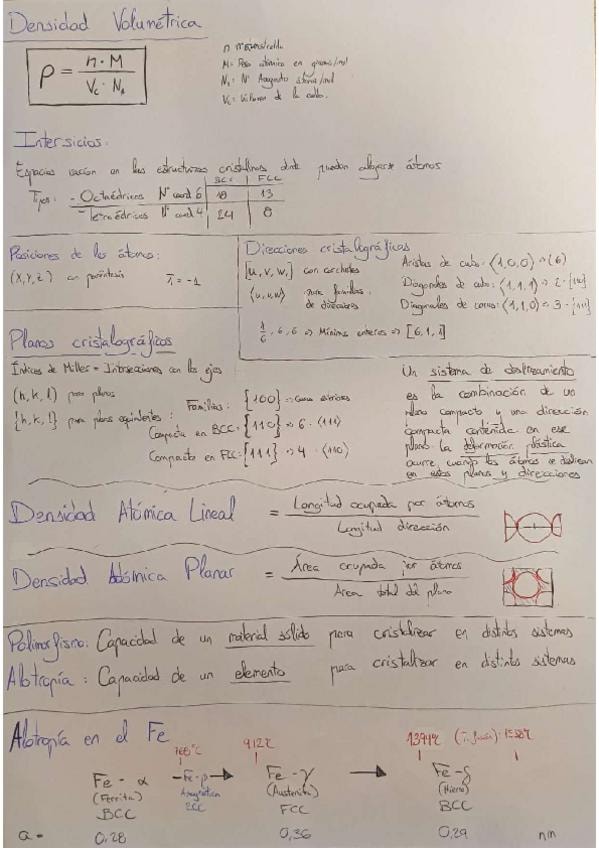 Densidad Volumétrica
ρ = n · M / Vc · NA
n = átomos/celda
M = Peso atómico en gramos/mol
NA = Nº Avogadro átomos/mol
Vc = Volumen de la celda.
Intersicios:
Espacios vacíos en las estructuras cristalinas donde pueden alojarse átomos
BCC FCC
Tipos: - Octaédricos Nº coord 6 18 13
- Tetraédricos Nº coord 4 24 8
Posiciones de los átomos:
(x, y, z) con paréntesis 1̄ = -1
Direcciones cristalográficas
[u, v, w] con corchetes
⟨u, v, w⟩ para familias
de direcciones
1/6, 6, 6 => Mínimos enteros => [6, 1, 1]
Aristas de cubo: ⟨1,0,0⟩ => (6)
Diagonales de cubo: ⟨1,1,1⟩ => 2 ·
Diagonales de caras: ⟨1,1,0⟩ => 3 ·
Planos cristalográficos
Índices de Miller = Intersecciones con los ejes
(h, k, l) para planos
{h, k, l} para planos equivalentes:
Familias: {100} => caras
Compacta en BCC: {110} => 6 · ⟨111⟩
Compacto en FCC: {111} => 4 · ⟨110⟩
Un sistema de deslizamiento
es la combinación de un
plano compacto y una dirección
compacta contenida en ese
plano. La deformación plástica
ocurre cuando los átomos se deslizan
en estos planos y direcciones
Densidad Atómica Lineal = Longitud ocupada por átomos / Longitud dirección
Densidad Atómica Planar = Área ocupada por átomos / Área total del plano
Polimorfismo: Capacidad de un material sólido para cristalizar en distintos sistemas
Alotropía: Capacidad de un elemento para cristalizar en distintos sistemas
Alotropía en el Fe
768ºC 912ºC 1394ºC (T. fusión): 1538ºC
Fe - α - Fe-β → Fe - γ → Fe - δ
(Ferrita) (Austenita) (Hierro)
BCC BCC FCC BCC
a = 0,28 0,36 0,29 nm